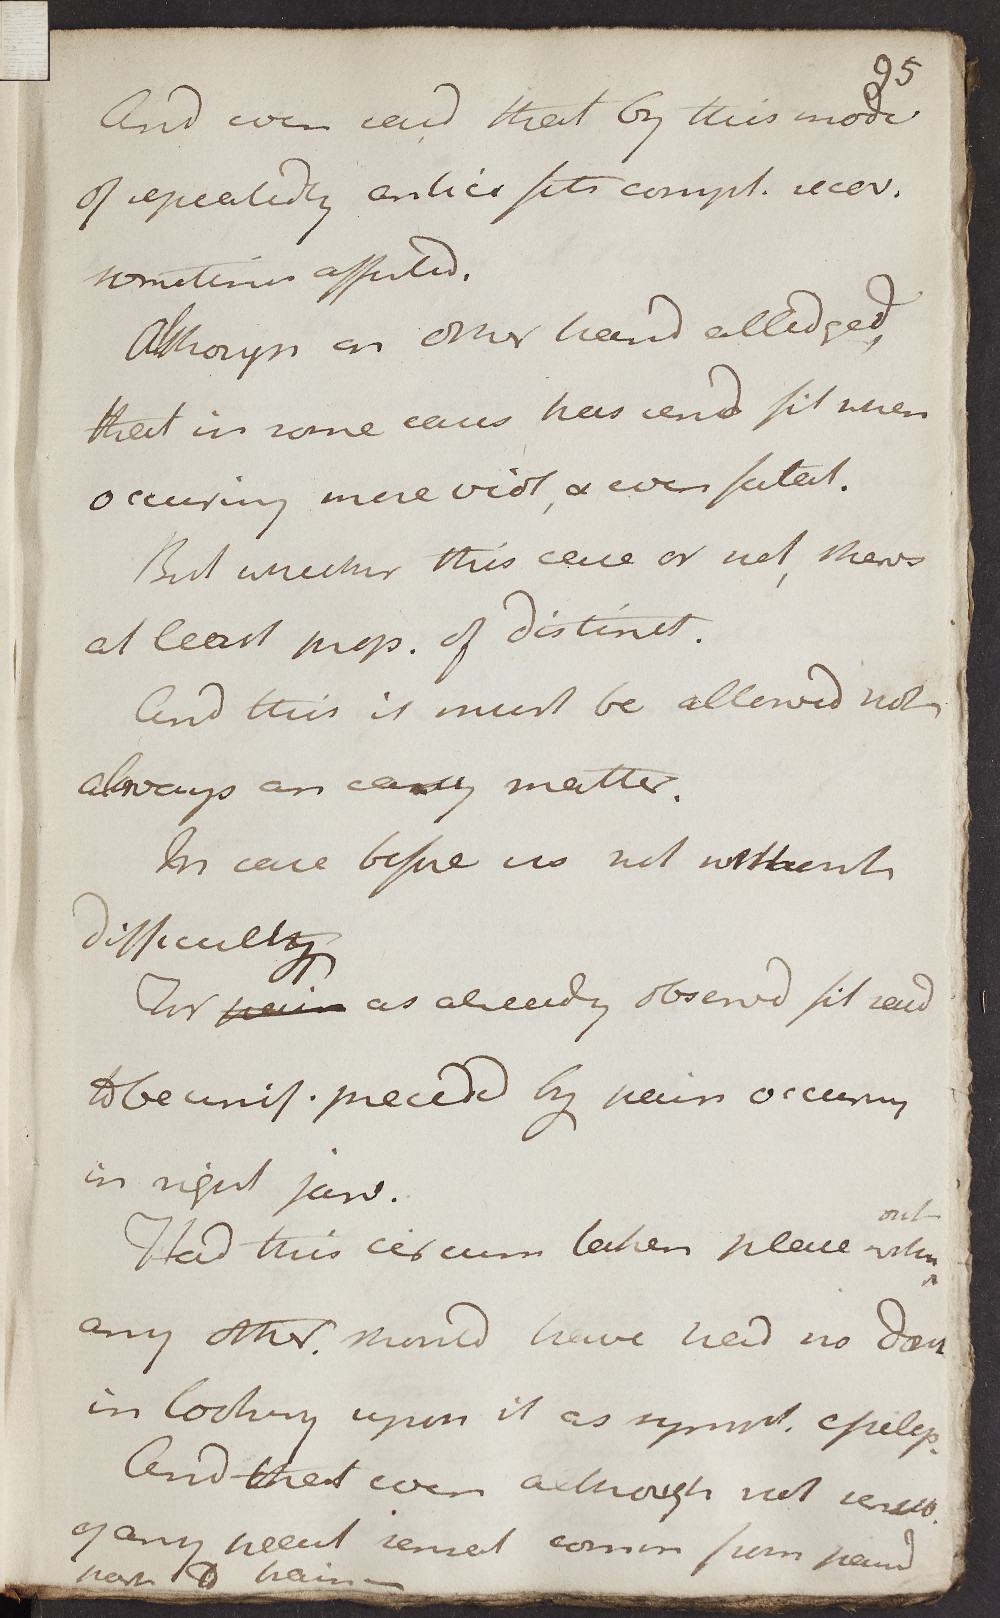 95
And even said that by this mode
of repeatedly fits compt. recov.
sometimes affected.
Although on other hand alledged,
that in some cases has rend fit when
occuring more viol, & even fatal.
But whether this case or not, shews
at least prop. of distinct.
And this it must be allowed not
always an easy matter.
In case before us not without
difficulty
For pain as already observd fit said
to be unif. preceded by pain occurring
in right jaw.
Had this circum taken place without
any other. should have had no dou
in looking upon it as sympt. epilep.
And that even although not
of any from
part to brain